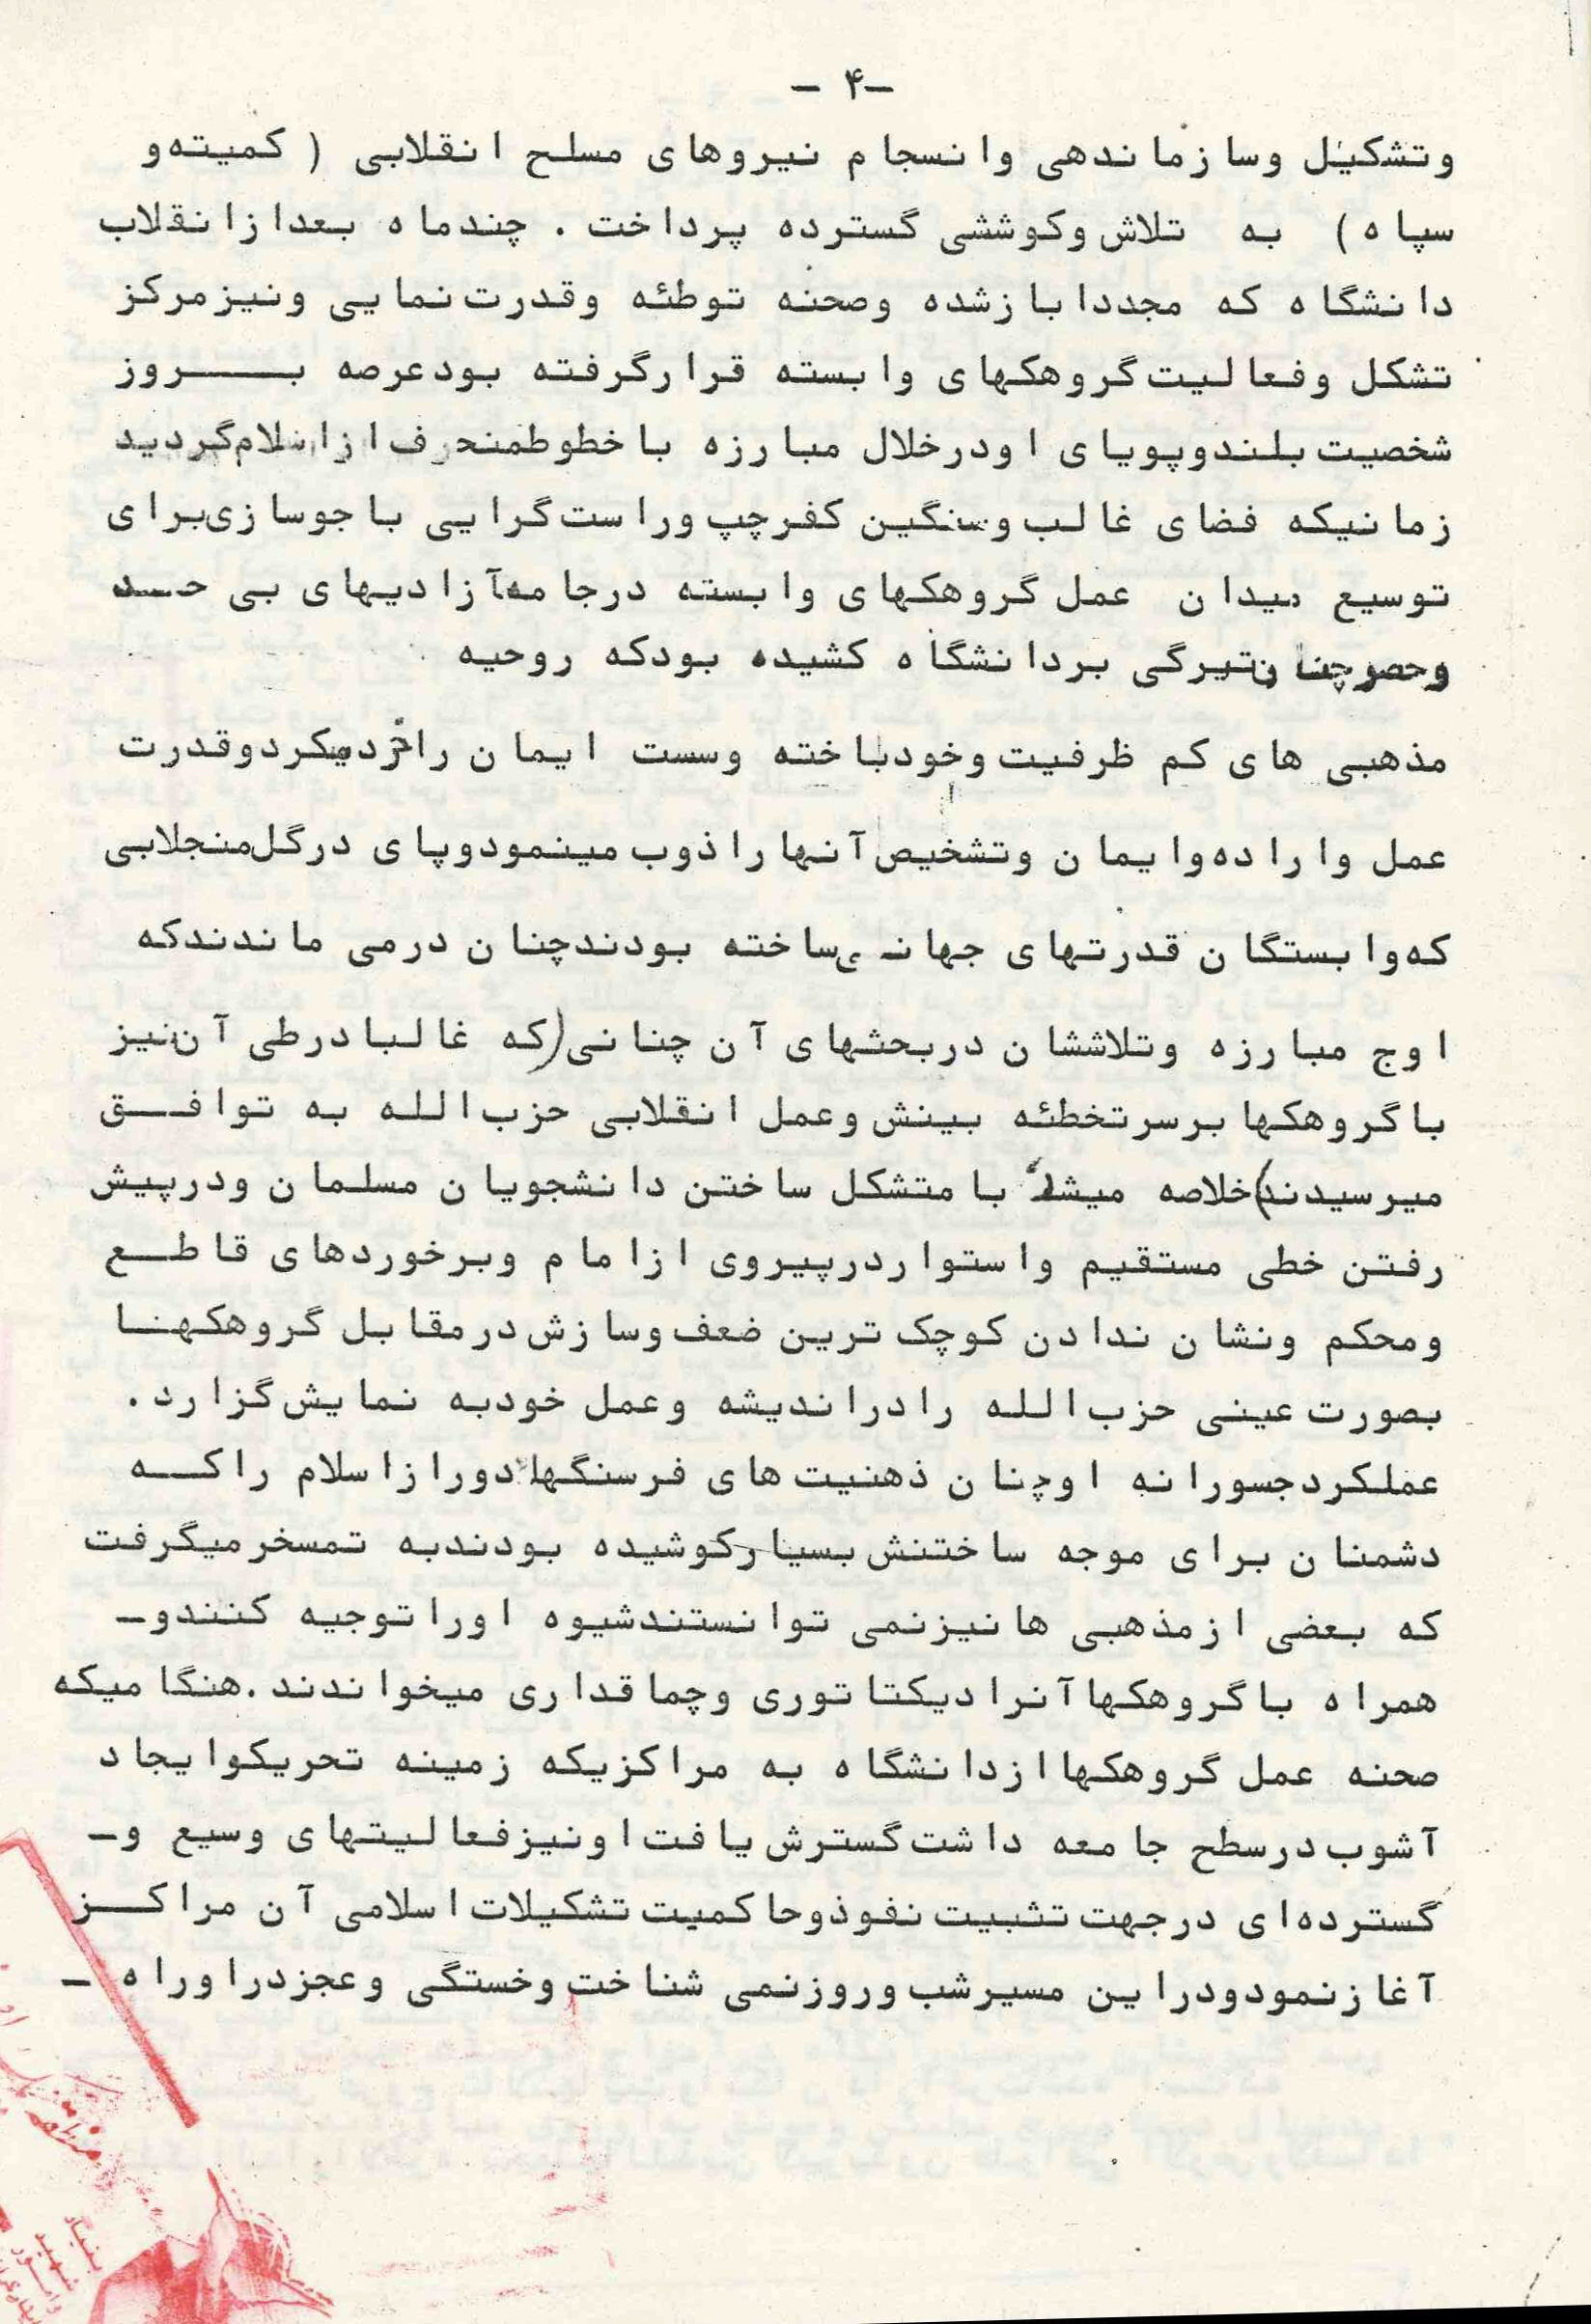 -۴ -
وتشکیل وسازماندهی وانسجام نیروهای مسلح انقلابی ( کمیته و
سپاه) به تلاش وکوششی گسترده پرداخت . چندماه بعدازانقلاب
دانشگاه که مجددابازشده وصحنه توطئه وقدرت نمایی ونیزمرکز
تشکل وفعالیت گروهکهای وابسته قرارگرفته بودعرصه بــــروز
شخصیت بلندوپویای اودرخلال مبارزه باخطوط منحرف ازاسلام گردید
زمانیکه فضای غالب وسنگین کفرچپ وراست گرایی باجوسازی برای
توسیع میدان عمل گروهکهای وابسته درجامه آزادیهای بی حــد
وحصرچنان تیرگی بردانشگاه کشیده بودکه روحیه
مذهبی های کم ظرفیت وخودباخته وسست ایمان راخردمیکردوقدرت
عمل واراده وایمان وتشخیص آنهاراذوب مینمودوپای درگل منجلابی
که وابستگان قدرتهای جهانی ساخته بودندچنان درمی ماندندکه
اوج مبارزه وتلاششان دربحثهای آن چنانی(که غالبادرطی آن نیز
باگروهکهابرسرتخطئه بینش وعمل انقلابی حزب الله به توافــق
میرسیدند)خلاصه میشد با متشکل ساختن دانشجویان مسلمان ودرپیش
رفتن خطی مستقیم واستواردرپیروی ازامام وبرخوردهای قاطــع
ومحکم ونشان ندادن کوچک ترین ضعف وسازش درمقابل گروهکهــا
بصورت عینی حزب الله رادراندیشه وعمل خودبه نمایش گزارد.
عملکردجسورانه اوچنان ذهنیت های فرسنگهادورازاسلام راکــه
دشمنان برای موجه ساختنش بسیارکوشیده بودندبه تمسخرمیگرفت
که بعضی ازمذهبی هانیزنمی توانستندشیوه اوراتوجیه کنندوـ
همراه باگروهکهاآنرادیکتاتوری وچماقداری میخواندند.هنگامیکه
صحنه عمل گروهکهاازدانشگاه به مراکزیکه زمینه تحریکوایجاد
آشوب درسطح جامعه داشت گسترش یافت اونیزفعالیتهای وسیع وـ
گسترده ای درجهت تثبیت نفوذوحاکمیت تشکیلات اسلامی آن مراکــز
آغازنمودودراین مسیرشب وروزنمی شناخت وخستگی وعجزدراوراه ـ
بنیاد
شهید